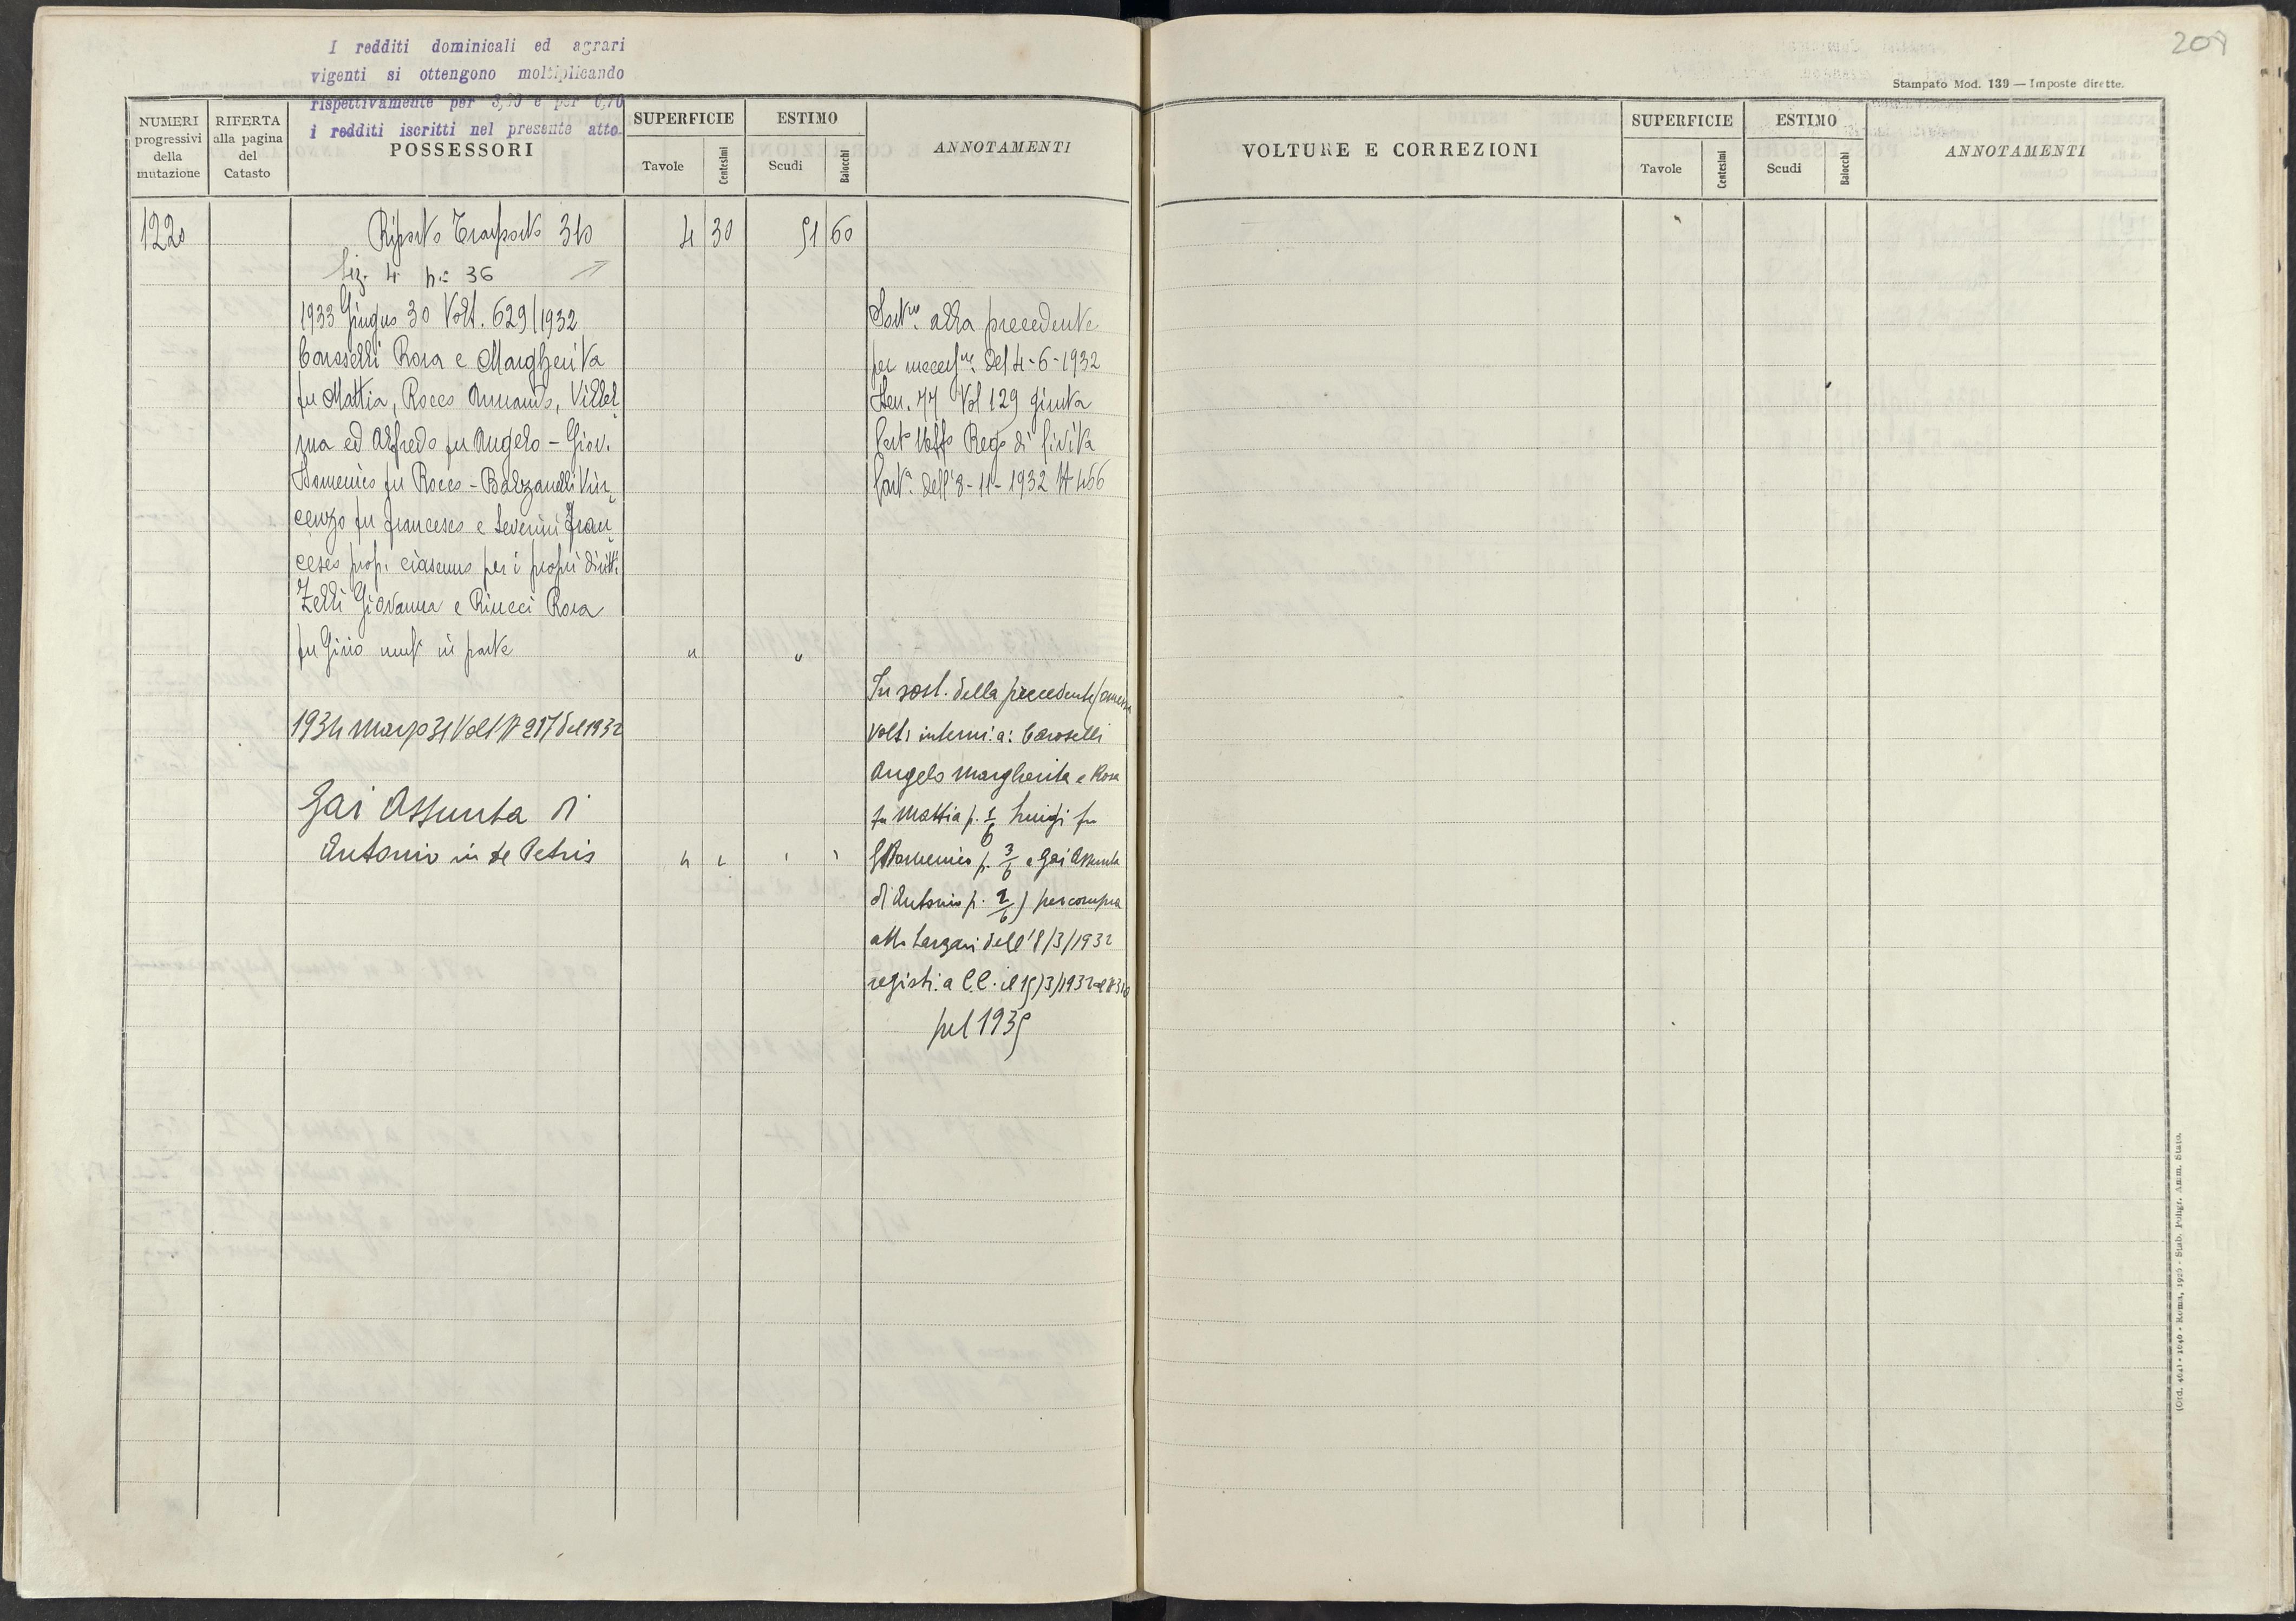 I redditi dominicali ed agrari
vigenti si ottengono moltiplicando
rispettivamente per 3,70 e per 0,70
i redditi iscritti nel presente atto.
209
Stampato Mod. 139 — Imposte dirette.
NUMERI progressivi della mutazione
RIFERTA alla pagina del Catasto
POSSESSORI
SUPERFICIE
Tavole
Centesimi
ESTIMO
Scudi
Baiocchi
ANNOTAMENTI
VOLTURE E CORREZIONI
SUPERFICIE
Tavole
Centesimi
ESTIMO
Scudi
Baiocchi
ANNOTAMENTI
1220 Riporto Trasporto 310 4 30 51 60
Sez. 4 n. 36
1933 Giugno 30 Volt. 629/1932
Caroselli Rosa e Margherita
fu Mattia, Rocco Armando, Villel
ma ed Alfredo fu Angelo - Giov.
Domenico fu Rocco - Balzanelli Vin
cenzo fu Francesco e Severini Fran
cesco prop. ciascuno per i propri diritti
Zelli Giovanna e Rineci Rosa
fu Girio usuf. in parte " "
alla precedente
per del 4-6-1932
Den. 77 Vol 129 giunta
Uff° Reg° di Civita
Cast.a dell'8-11-1932 N 466
1934 Marzo 31 Volt N 217 del 1932
Gai Assunta di
Antonio in de Petris " " ' '
In sost. della precedente (omessa
Volt: intern: a: Caroselli
Angelo Margherita e Rosa
fu Mattia p. 1/6 Luigi fu
GDomenico p. 3/6 e Gai Assunta
di Antonio p. 2/6) per compra
atto Largari dell'8/3/1932
registr. a C.C. il 15/3/1932 al
pel 1935
(Ord. 462) - 1040 - Roma, 1926 - Stab. Poligr. Amm. Stato.